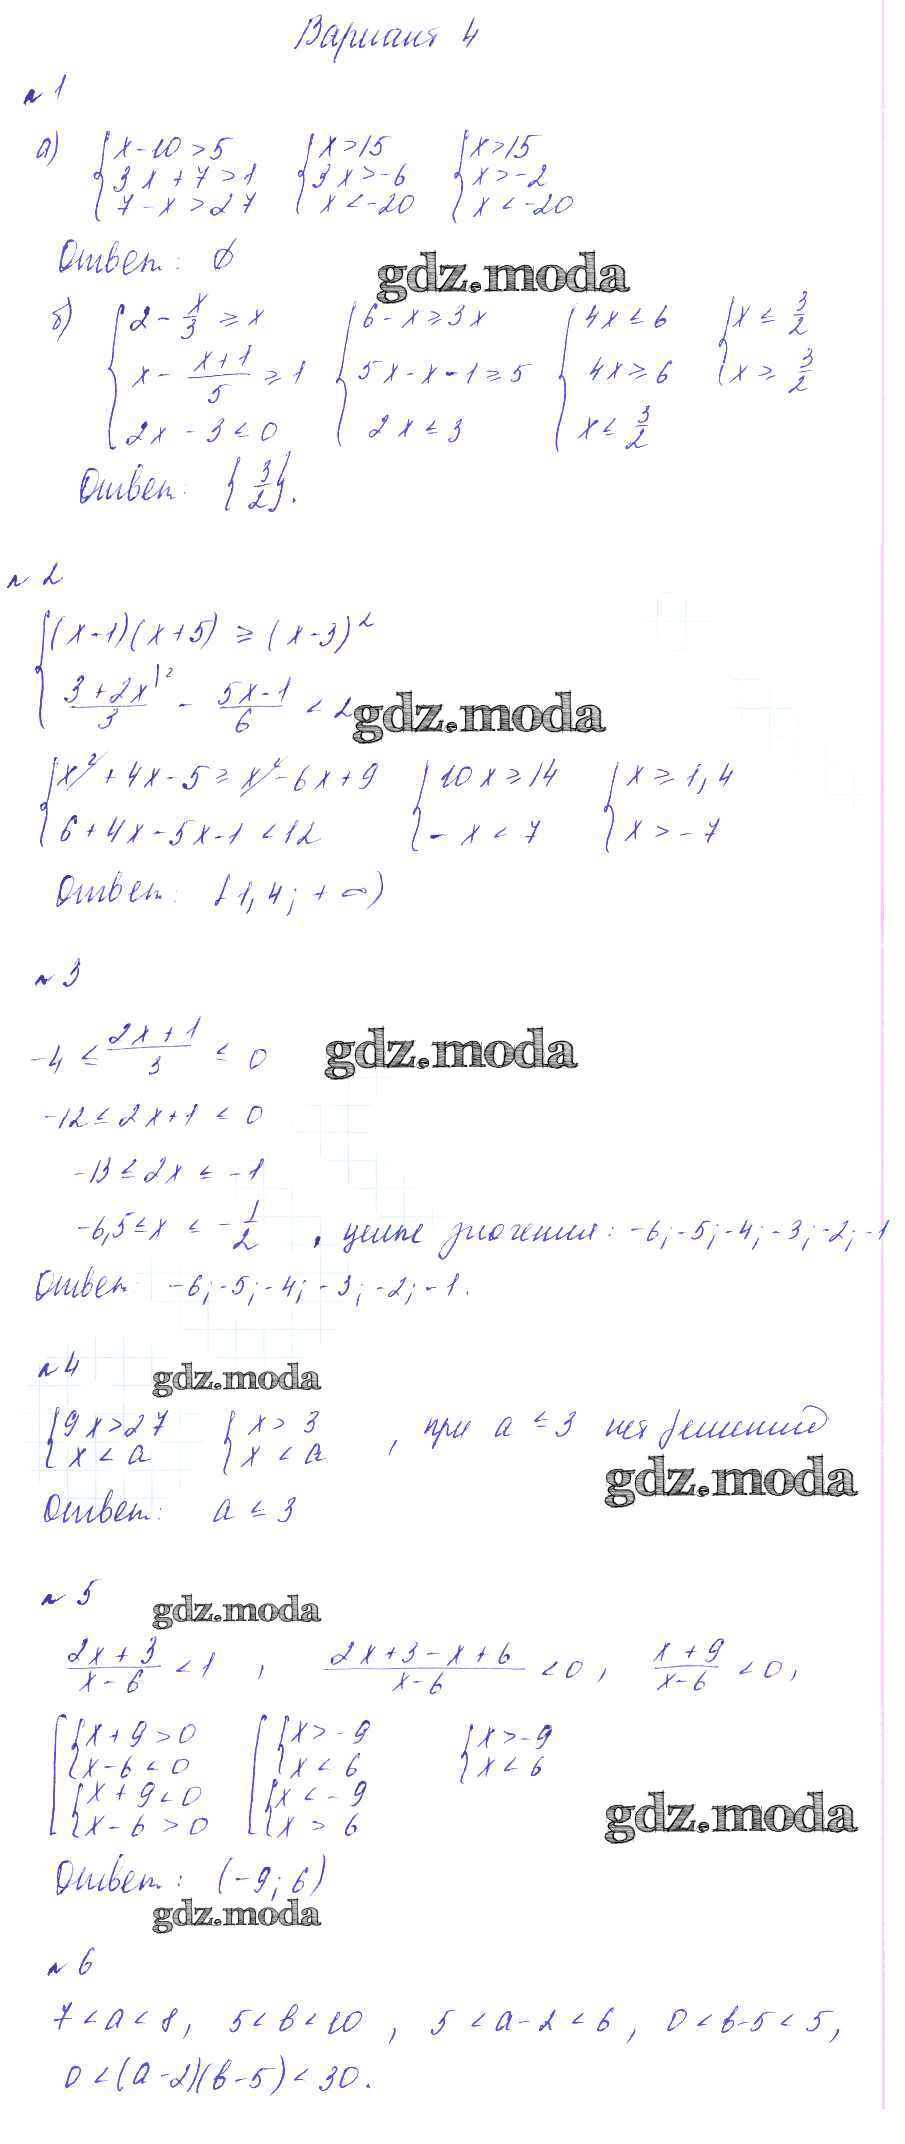 Вариант 4
№ 1
а) { x-10 > 5   { x > 15   { x > 15
3x + 7 > 1   3x > -6   x > -2
7 - x > 27   x < -20   x < -20
Ответ: ∅
gdz.moda
б) { 2 - x/3 ≥ x   { 6 - x ≥ 3x   { 4x ≤ 6   { x ≤ 3/2
x - (x+1)/5 ≥ 1   5x - x - 1 ≥ 5   4x ≥ 6   x ≥ 3/2
2x - 3 ≤ 0   2x ≤ 3   x ≤ 3/2
Ответ: {3/2}.
№ 2
{ (x-1)(x+5) ≥ (x-3)²
(3+2x)/3 |² - (5x-1)/6 < 2
gdz.moda
{ x² + 4x - 5 ≥ x² - 6x + 9   { 10x ≥ 14   { x ≥ 1,4
6 + 4x - 5x - 1 < 12   - x < 7   x > -7
Ответ: [1,4; +∞)
№ 3
-4 ≤ (2x+1)/3 ≤ 0
gdz.moda
-12 ≤ 2x+1 ≤ 0
-13 ≤ 2x ≤ -1
-6,5 ≤ x ≤ -1/2 , целые значения: -6; -5; -4; -3; -2; -1
Ответ: -6; -5; -4; -3; -2; -1.
№ 4
gdz.moda
{ 9x > 27   { x > 3 , при a ≤ 3 нет решений
x < a   x < a
gdz.moda
Ответ: a ≤ 3
№ 5
gdz.moda
(2x+3)/(x-6) < 1 , (2x+3-x+6)/(x-6) < 0, (x+9)/(x-6) < 0,
[ { x+9 > 0   [ { x > -9   { x > -9
x-6 < 0   x < 6   x < 6
{ x+9 < 0   { x < -9
x-6 > 0   x > 6
gdz.moda
Ответ: (-9; 6)
gdz.moda
№ 6
7 < a < 8, 5 < b < 10 , 5 < a-2 < 6, 0 < b-5 < 5,
0 < (a-2)(b-5) < 30.